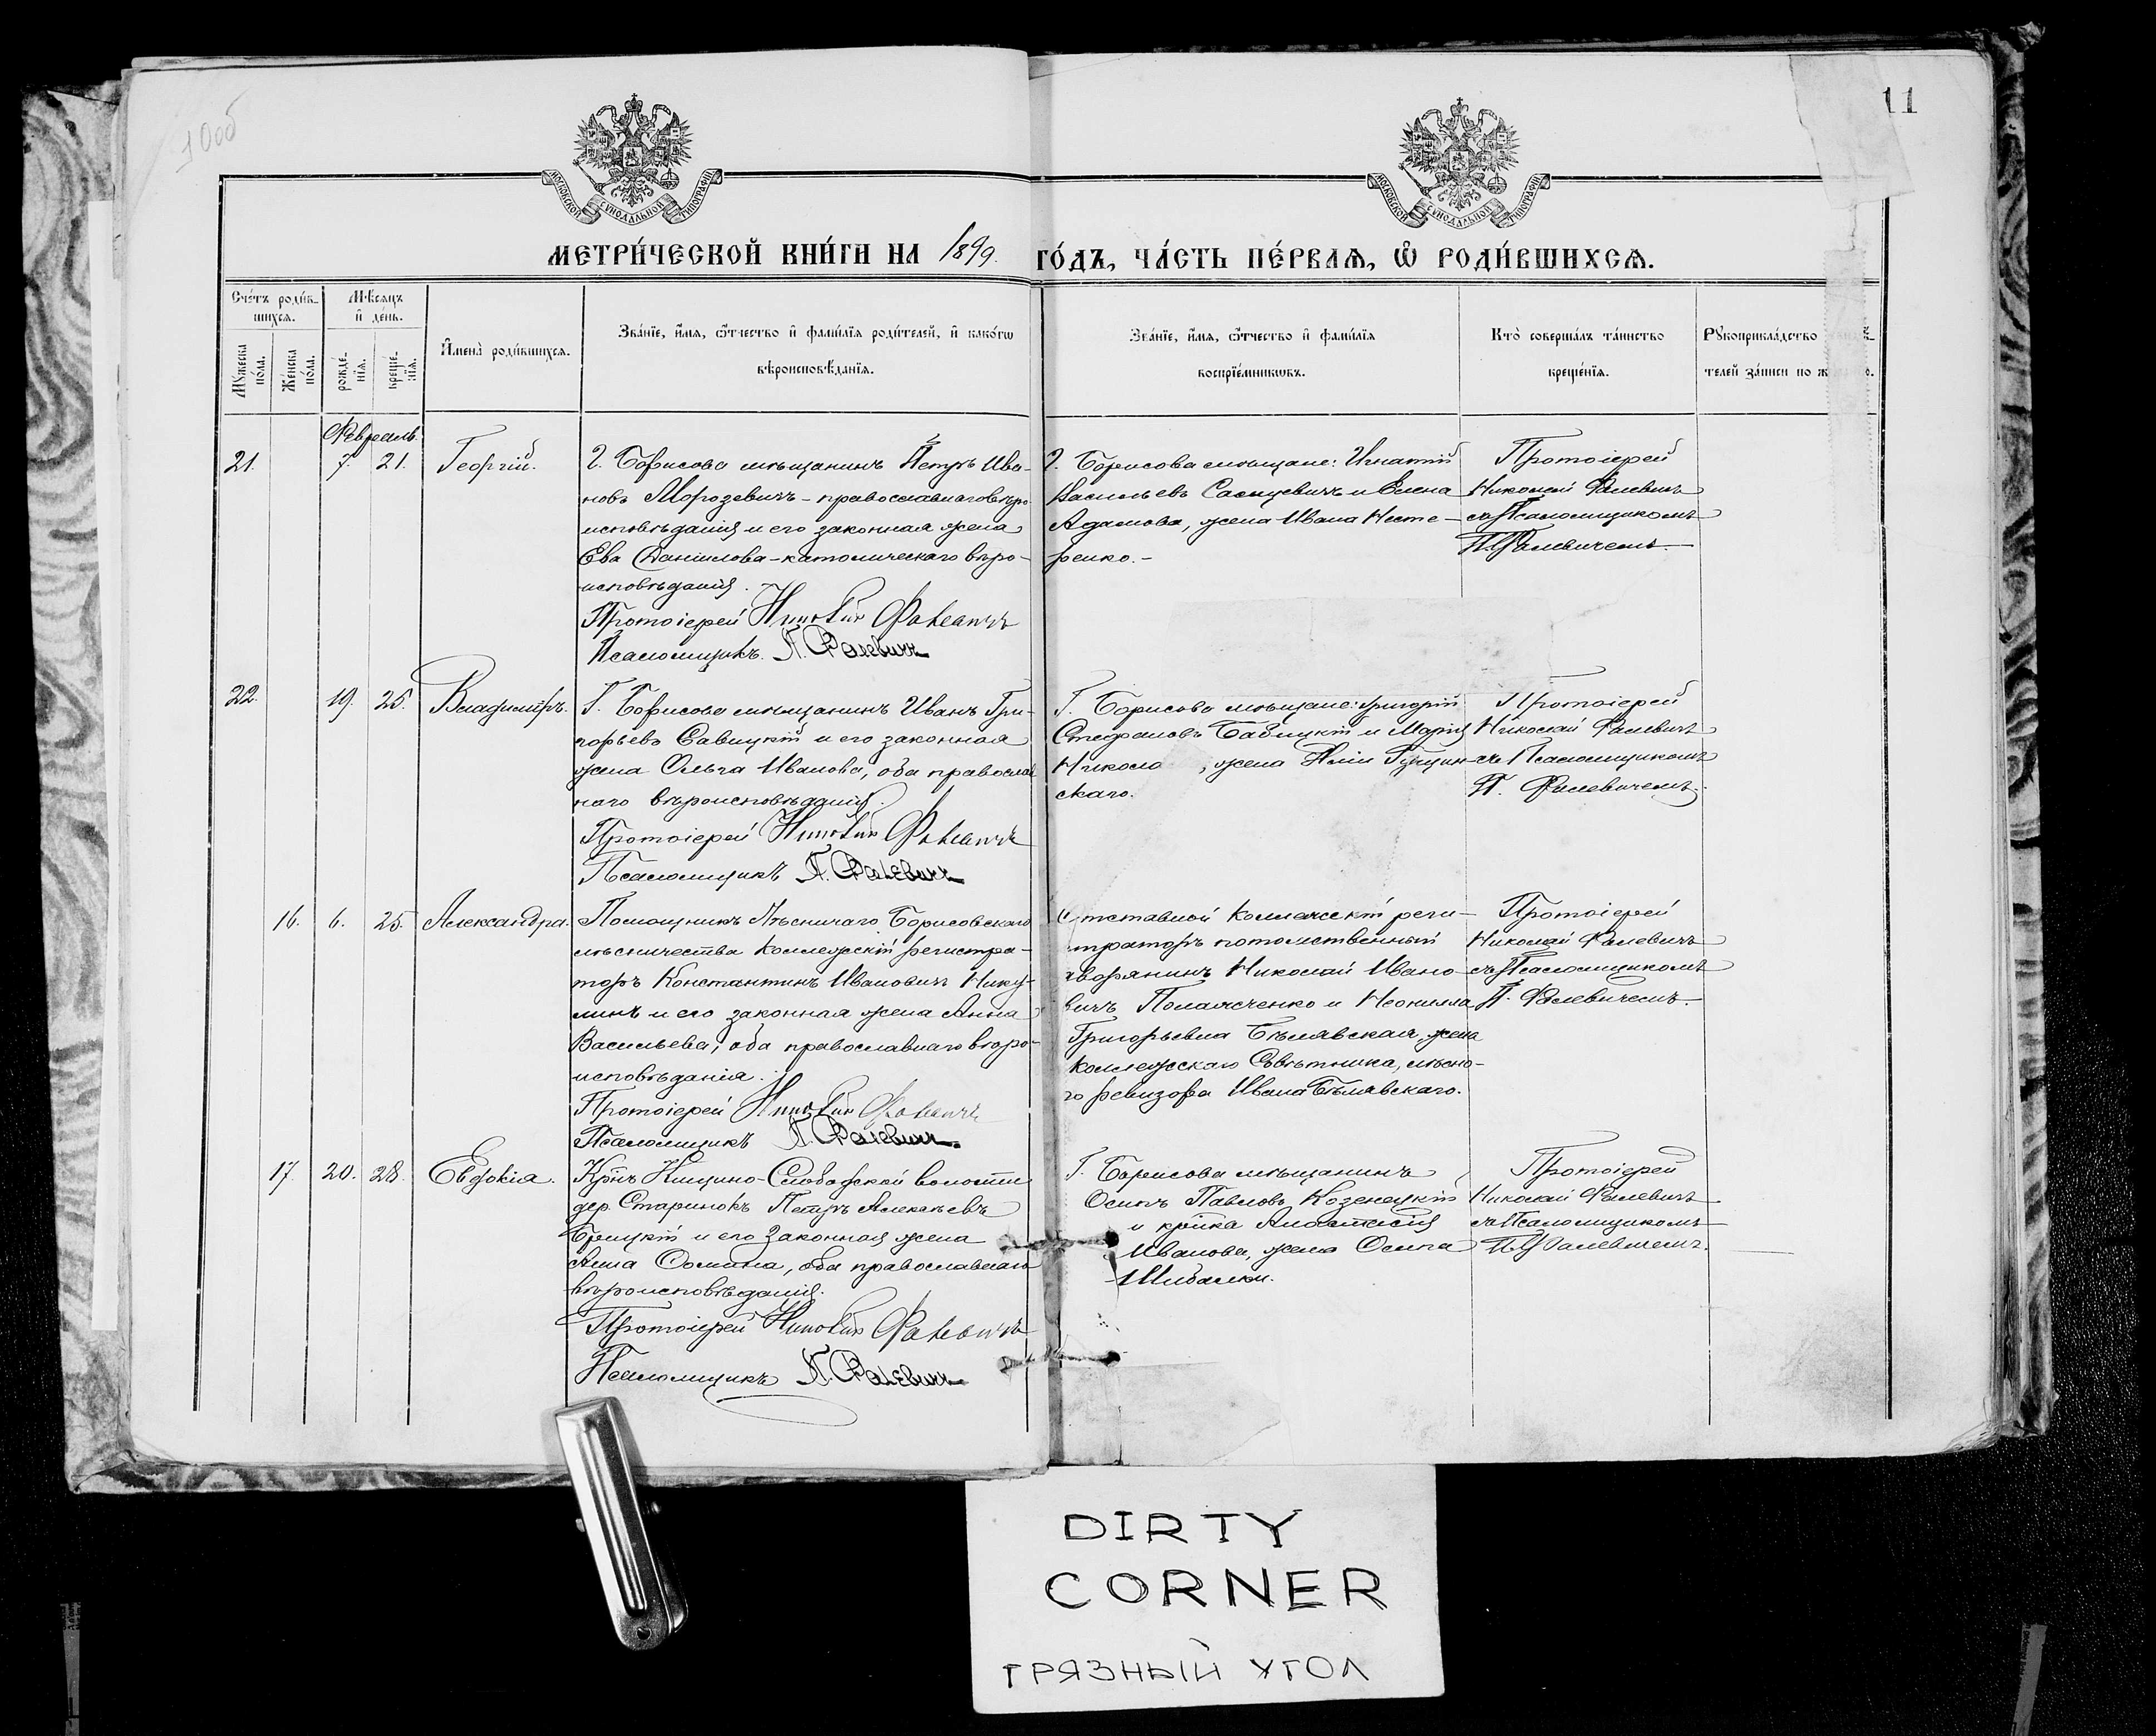 10об
11
МОСКОВСКОЙ СУНОДАЛЬНОЙ ТИПОГРАФІИ
МОСКОВСКОЙ СУНОДАЛЬНОЙ ТИПОГРАФІИ
МЕТРИ́ЧЕСКОЙ КНИ́ГИ НА 1899. ГО́ДЪ, ЧА́СТЬ ПЕ́РВАѦ, Ѡ РОДИ́ВШИХСѦ.
Сче́тъ роди́в-
шихсѧ.
Мꙋ́жеска по́ла.
Же́нска по́ла.
Мѣ́сѧцъ
и҆ де́нь.
рожде́-
нїѧ.
креще́-
нїѧ.
И҆мена̀ роди́вшихсѧ.
Зва́нїе, и҆́мѧ, ѻ҆́тчество и҆ фами́лїѧ роди́телей, и҆ како́гѡ
вѣроисповѣ́данїѧ.
Зва́нїе, и҆́мѧ, ѻ҆́тчество и҆ фами́лїѧ
воспрїе́мникѡвъ.
Кто̀ соверша́лъ та́инство
креще́нїѧ.
Рꙋкоприкла́дство
телей за́писи по
Февраль.
21. 7. 21. Георгій.
Г. Борисова мѣщанинъ Петръ Ива-
новъ Морозевичъ - православнаго вѣро
исповѣданія и его законная жена
Ева Даніилова - католическаго вѣро-
исповѣданія.
Протоіерей Николай Фалевичъ
Псаломщикъ. П. Фалевичъ
Г. Борисова мѣщане: Игнатій
Васильевъ и Елена
Адамова, жена Ивана Несте-
ренко. -
Протоіерей
Николай Фалевичъ
съ Псаломщикомъ
П. Фалевичемъ.
22. 19. 25. Владиміръ.
Г. Борисова мѣщанинъ Иванъ Гри-
горьевъ Савицкій и его законная
жена Ольга Иванова, оба православ
наго вѣроисповѣданія.
Протоіерей Николай Фалевичъ
Псаломщикъ П. Фалевичъ
Г. Борисова мѣщане: Григорій
Стефановъ Бабицкій и Марія
Николо , жена
скаго.
Протоіерей
Николай Фалевичъ
съ Псаломщикомъ
П. Фалевичемъ.
16. 6. 25. Александра.
Помощникъ Лѣсничаго Борисовскаго
лѣсничества Коллежскій регистра-
торъ Константинъ Ивановичъ Нику-
линъ и его законная жена Анна
Васильева, оба православнаго вѣро-
исповѣданія.
Протоіерей Николай Фалевичъ
Псаломщикъ П. Фалевичъ.
Отставной Коллежскій реги-
страторъ потомственный
дворянинъ Николай Ивано-
вичъ Поламченко и Неонилла
Григорьевна Бѣлявская, жена
Коллежскаго Совѣтника, лѣсно-
го ревизора Ивана Бѣлявскаго.
Протоіерей
Николай Фалевичъ
съ Псаломщикомъ
П. Фалевичемъ.
17. 20. 28. Евдокія.
Крнъ Клищино-Слободской волости
дер. Старинокъ Петръ Алексѣевъ
и его законная жена
Анна Ѳомина, оба православнаго
вѣроисповѣданія.
Протоіерей Николай Фалевичъ
Псаломщикъ П. Фалевичъ
Г. Борисова мѣщанинъ
Осипъ Павловъ Козенецкій
и крнка Анастасія
Иванова, жена Осипа
Шибалки.
Протоіерей
Николай Фалевичъ
съ Псаломщикомъ
П. Фалевичемъ.
DIRTY
CORNER
ГРЯЗНЫЙ УГОЛ